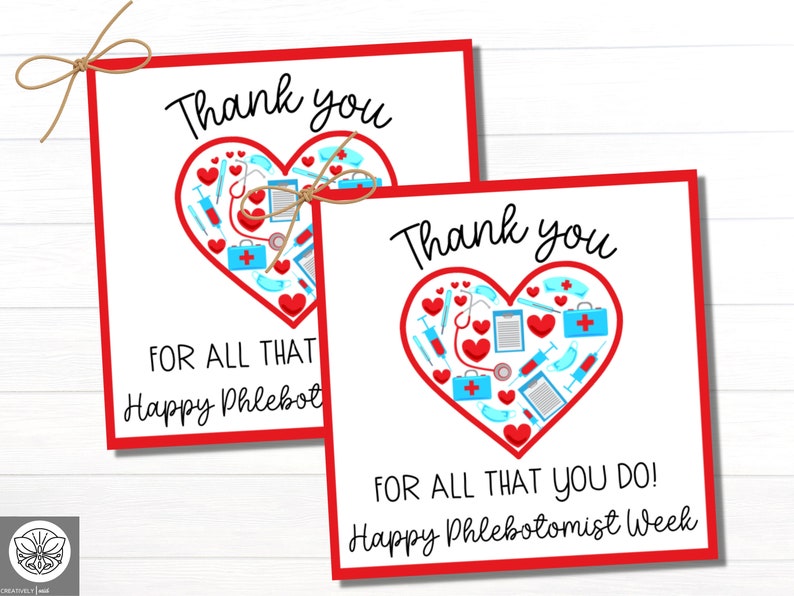 Thank you
FOR ALL THAT
Happy Phlebot
Thank you
FOR ALL THAT YOU DO!
Happy Phlebotomist Week
CREATIVELY | said